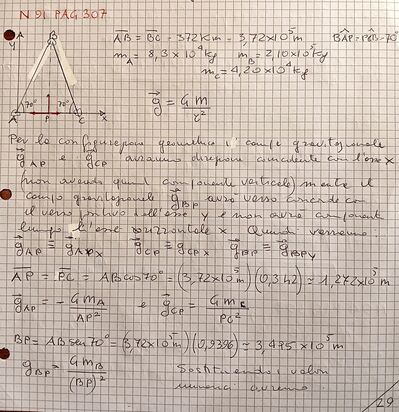 N 91 PAG 307
AB = BC = 372 Km = 3,72x10⁵m BÂP = PĈB = 70°
m_A = 8,3x10⁴kg m_B = 2,10x10⁵kg
m_C = 4,20x10⁴kg
y A B
g = G M / r²
A 70° P 70° C x
Per la configurazione geometrica i campi gravitazionale
g_AP e g_CP avranno direzione coincidente con l'asse x
(non avendo quindi componente verticale) mentre il
campo gravitazionale g_BP avrà verso coincide con
il verso positivo dell'asse y e non avrà componente
lungo l'asse orizzontale x. Quindi avremo:
g_AP ≡ g_APx g_CP ≡ g_CPx g_BP ≡ g_BPy
AP = PC = AB cos70° = (3,72x10⁵m)(0,342) ≃ 1,272x10⁵m
g_AP = - G m_A / AP² e g_CP = G m_C / PC²
BP = AB sen70° = (3,72x10⁵m)(0,9396) ≃ 3,495x10⁵m
g_BP = G m_B / (BP)² Sostituendo i valori
numerici avremo
29